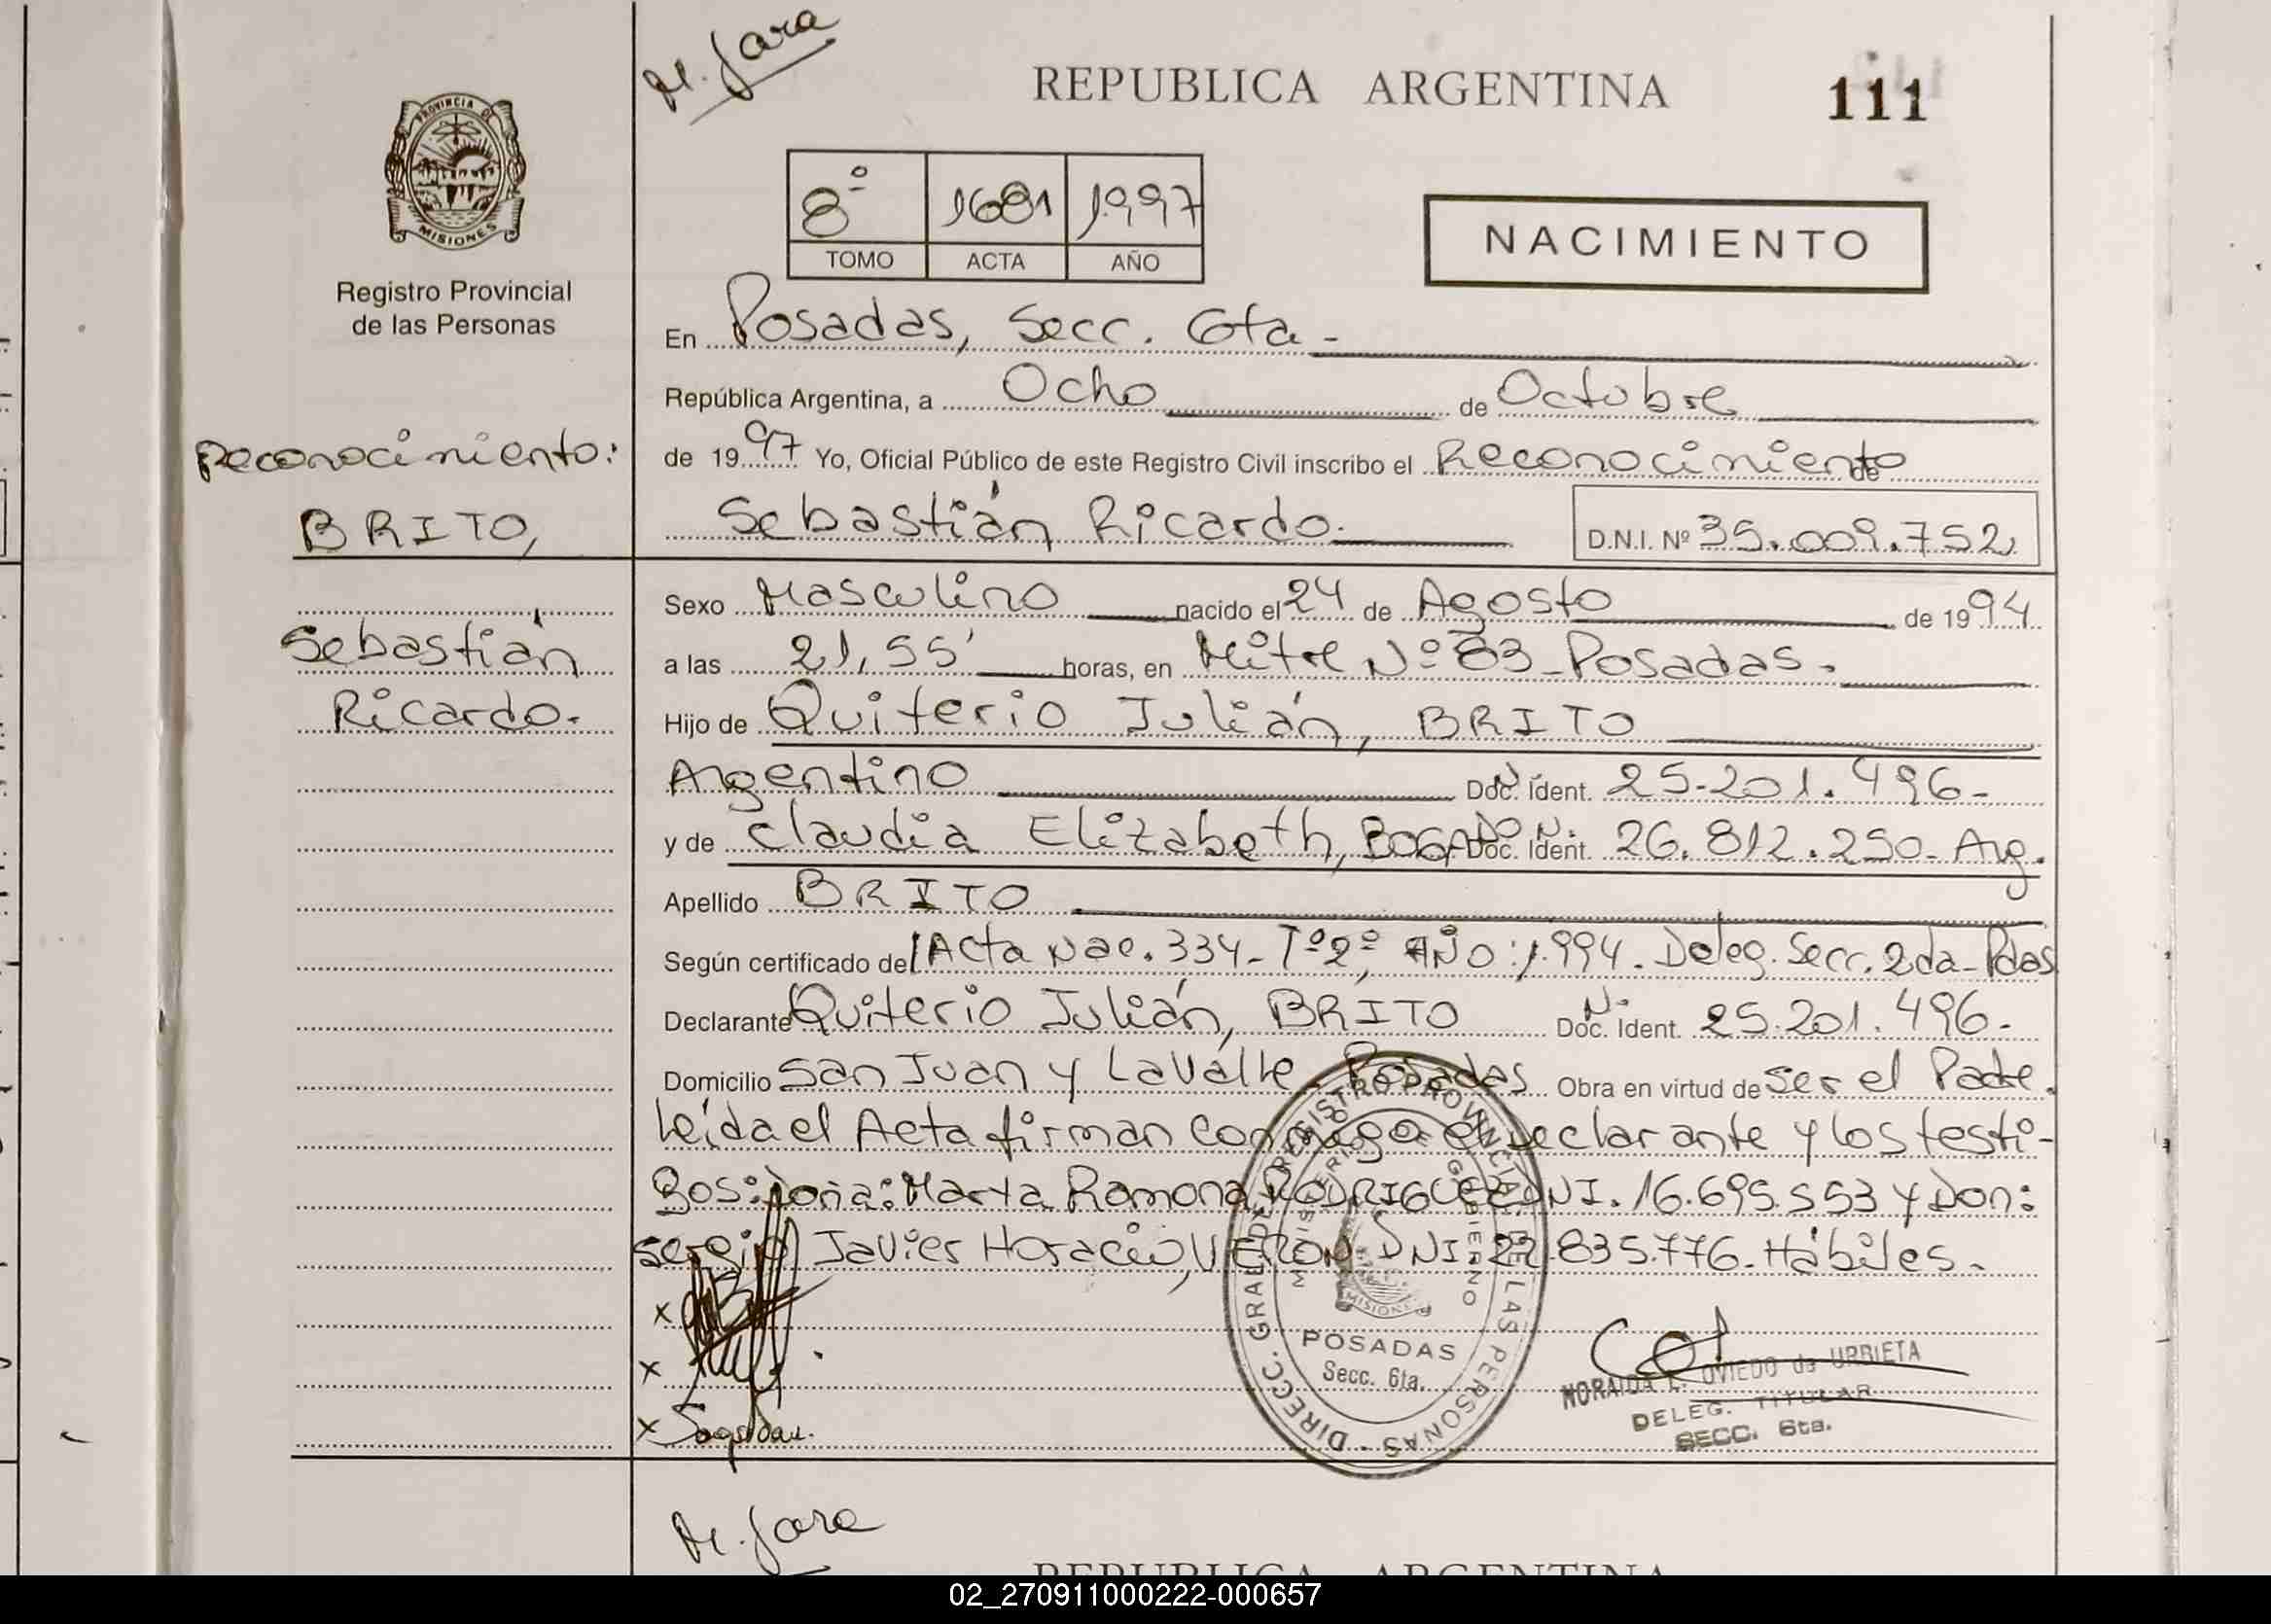 M. Jara
REPUBLICA ARGENTINA
111
PROVINCIA DE
MISIONES
Registro Provincial
de las Personas
8º 1681 1997
TOMO ACTA AÑO
NACIMIENTO
En Posadas, Secc. 6ta -
República Argentina, a Ocho de Octubre
de 1997 Yo, Oficial Público de este Registro Civil inscribo el Reconocimiento de
Sebastián Ricardo. D.N.I. Nº 35.009.752
Reconocimiento:
BRITO,
Sebastián
Ricardo.
Sexo Masculino nacido el 24 de Agosto de 1994
a las 21,55' horas, en Mitre Nº 83 - Posadas.
Hijo de Quiterio Julián, BRITO
Argentino Doc. Ident. 25.201.496-
y de Claudia Elizabeth, BOGADO Doc. Ident. 26.812.250- Arg.
Apellido BRITO
Según certificado del Acta Nac. 334- Tº2º, AÑO: 1.994. Deleg. Secc. 2da- Pdas
Declarante Quiterio Julián, BRITO Doc. Ident. 25.201.496-
Domicilio San Juan y Lavalle - Posadas Obra en virtud de ser el Padre.
Leída el Acta firman conmigo el declarante y los testi-
gos: Doña: Marta Ramona RODRIGUEZ DNI. 16.695.553 y Don:
Sergio Javier Horacio, VERON DNI. 22.835.776. Hábiles.
x
x
x
DIRECC. GRAL. DE REGISTRO PROVINCIAL DE LAS PERSONAS
MINISTERIO DE GOBIERNO
MISIONES
POSADAS
Secc. 6ta.
NORAIDA L. OVIEDO de URBIETA
DELEG. TITULAR
SECC. 6ta.
M. Jara
REPUBLICA ARGENTINA
02_270911000222-000657